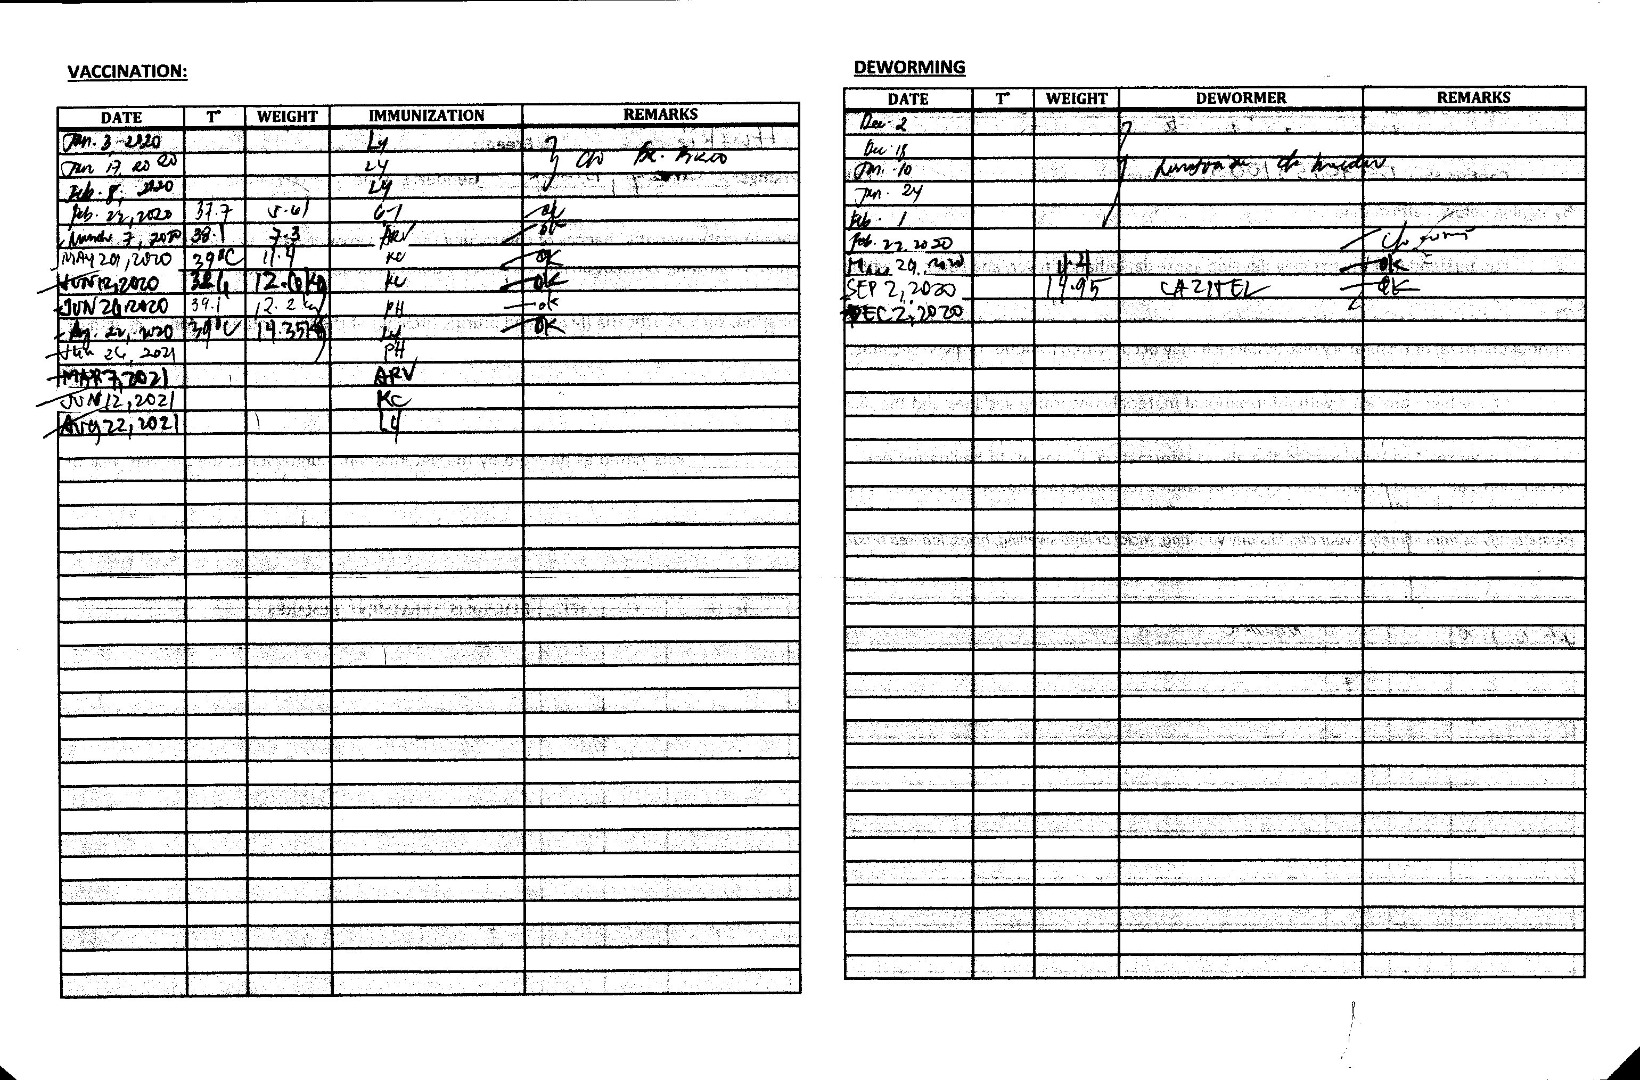 VACCINATION:
DATE T° WEIGHT IMMUNIZATION REMARKS
Jan. 3 2020 Ly
Jan 17, 2020 Ly c/o Dr.
Feb. 8, 2020 Ly
Feb. 22, 2020 37.7 5.61 6-1 ok
March 7, 2020 38.1 7.3 ARV ok
MAY 29, 2020 39°C 11.4 KC ok
JUN 12, 2020 12.0kg KC ok
JUN 26, 2020 39.1 12.2 kg PH ok
Aug. 22, 2020 39°C 14.35kg Ly OK
2021 PH
MAR 7, 2021 ARV
JUN 12, 2021 KC
Aug 22, 2021 Ly
DEWORMING
DATE T° WEIGHT DEWORMER REMARKS
Dec. 2
Dec. 18
Jan. 10 c/o breeder
Jan. 24
Feb. 1
Feb. 22, 2020 c/o
29, 2020 ok
SEP 2, 2020 14.95 CAZITEL OK
DEC 2, 2020